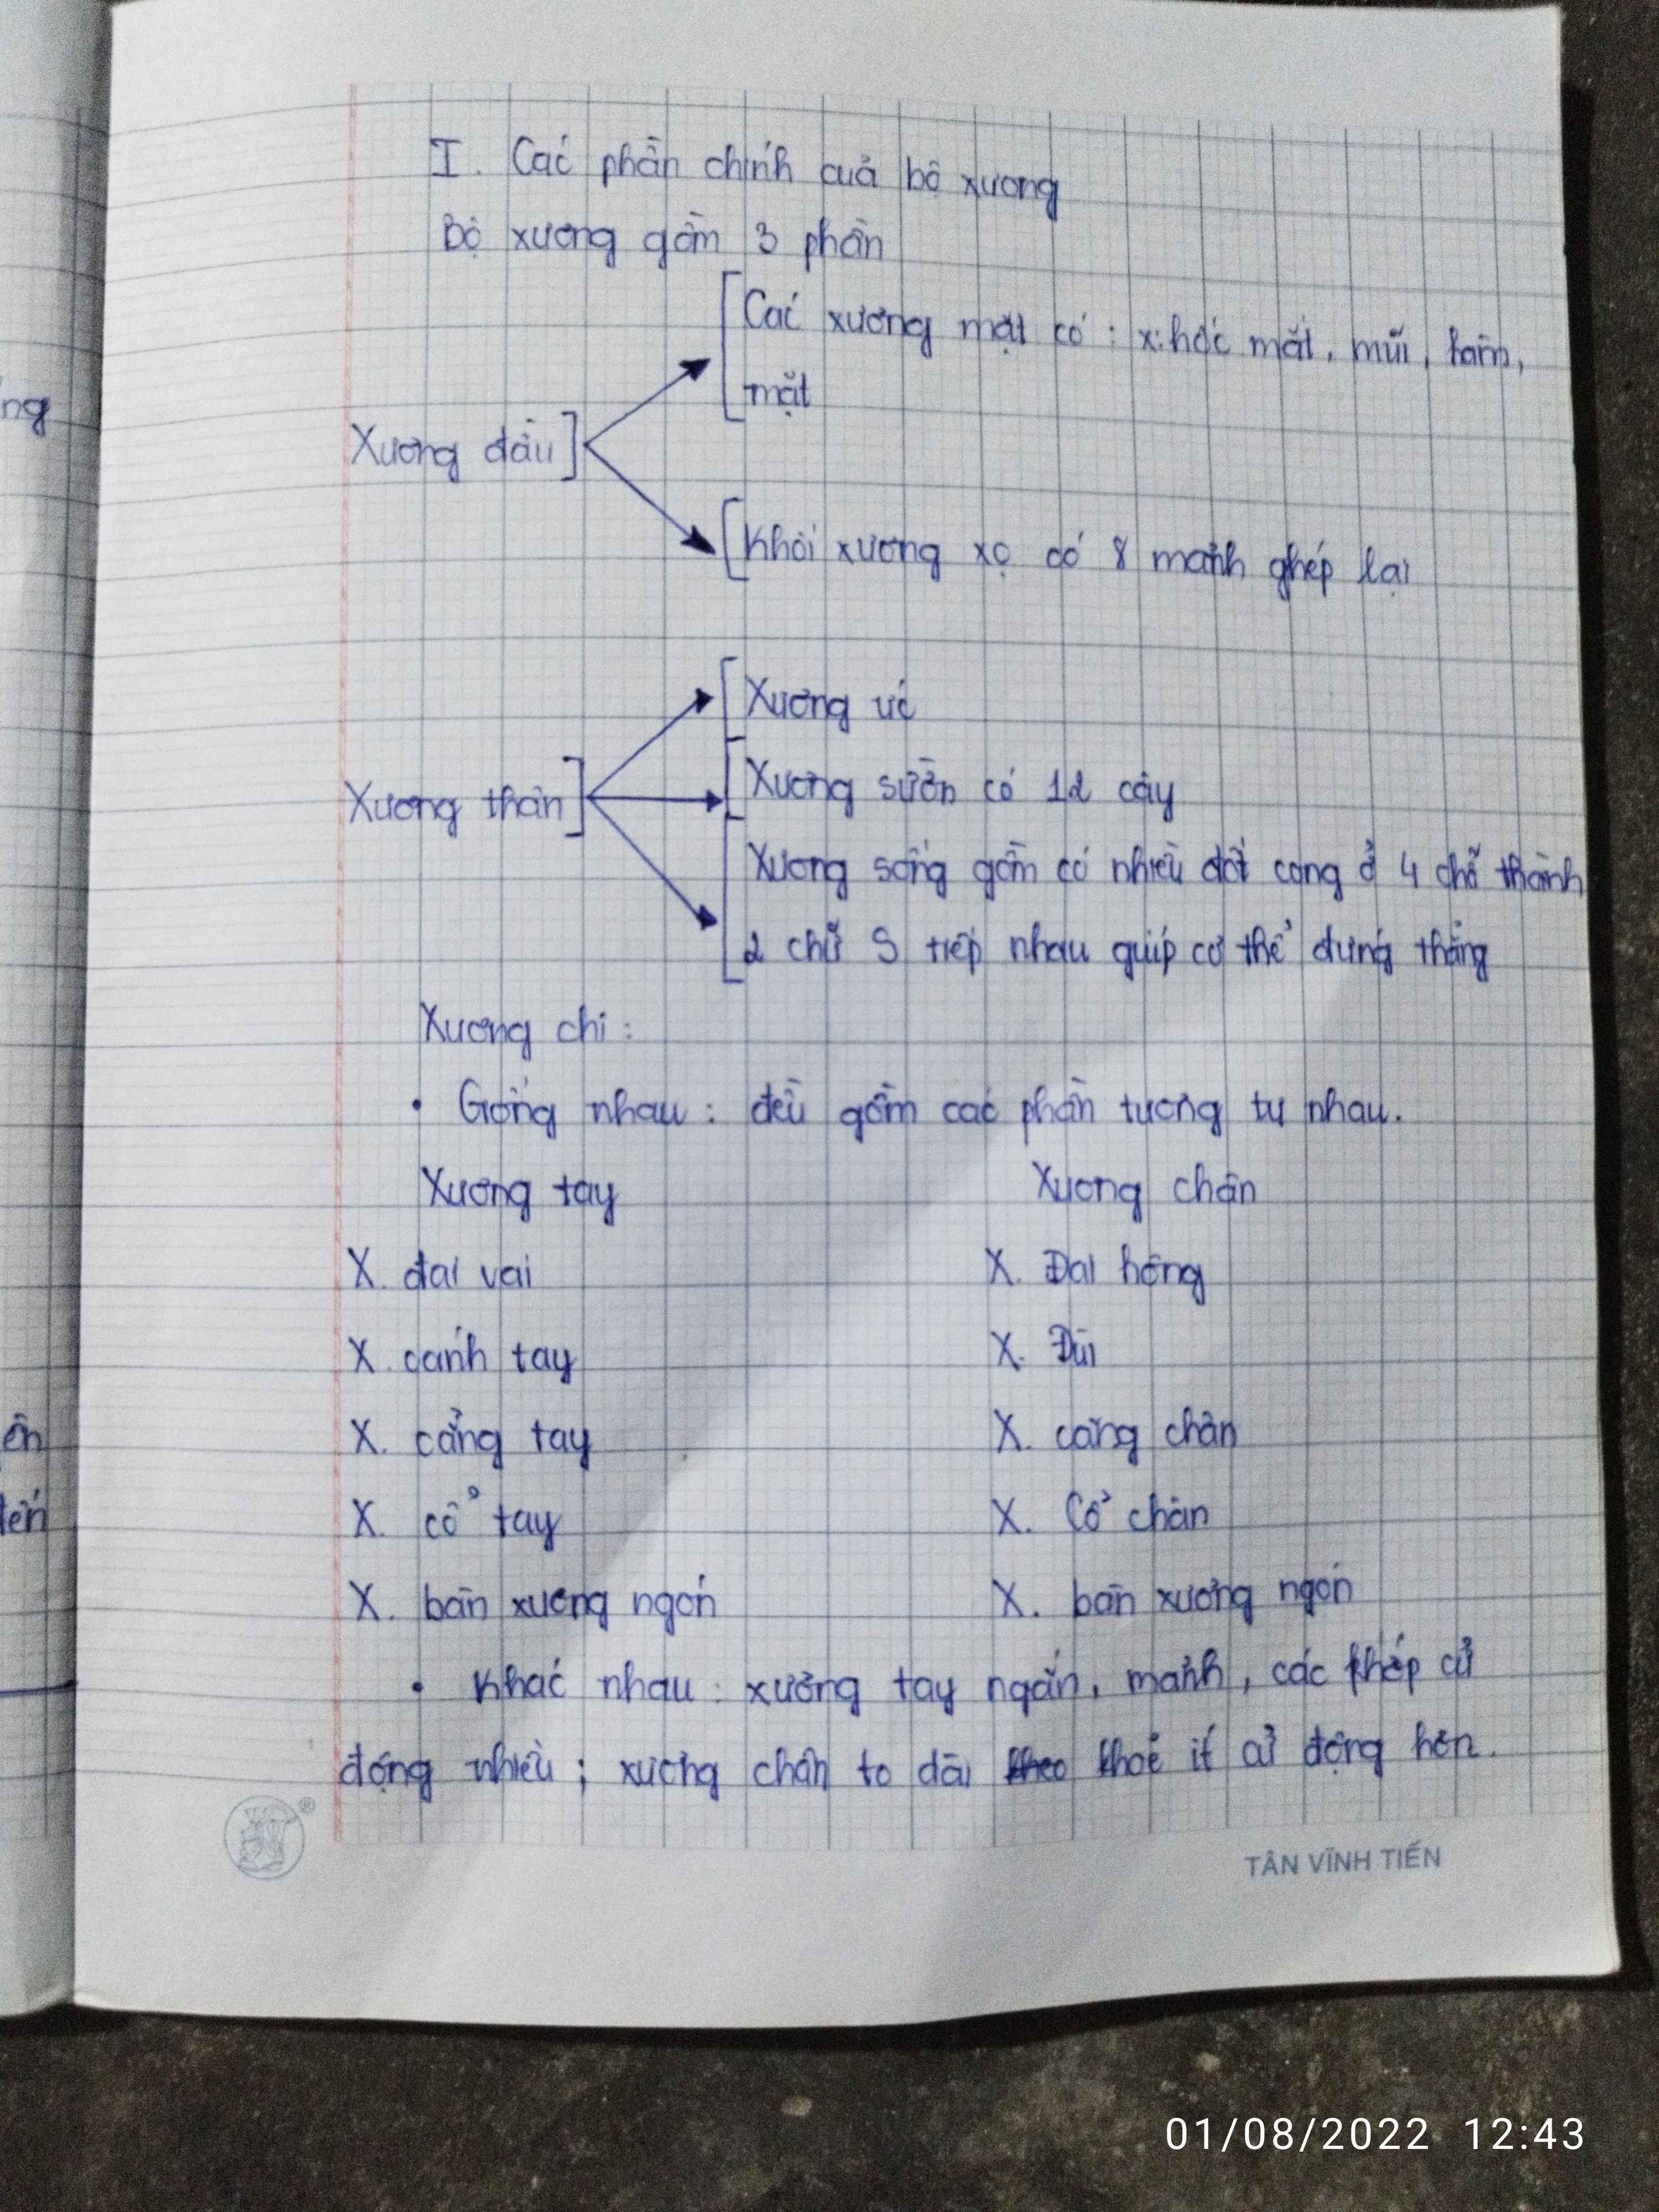 ng
ên
I. Các phần chính của bộ xương
Bộ xương gồm 3 phần
Các xương mặt có : x: hốc mắt, mũi, hàm,
mặt
Xương đầu
Khối xương xọ có 8 mảnh ghép lại
Xương ức
Xương sườn có 12 cây
Xương thân
Xương sống gồm có nhiều đốt cong ở 4 chỗ thành
2 chữ S tiếp nhau giúp cơ thể đứng thẳng
Xương chi :
• Giống nhau : đều gồm các phần tương tự nhau.
Xương tay Xương chân
X. đai vai X. Đai hông
X. cánh tay X. Đùi
X. cẳng tay X. cẳng chân
X. cổ tay X. Cổ chân
X. bàn xương ngón X. bàn xương ngón
• Khác nhau : xương tay ngắn, mảnh, các khớp cử
động nhiều ; xương chân to dài khoẻ ít cử động hơn.
TÂN VĨNH TIẾN
01/08/2022 12:43